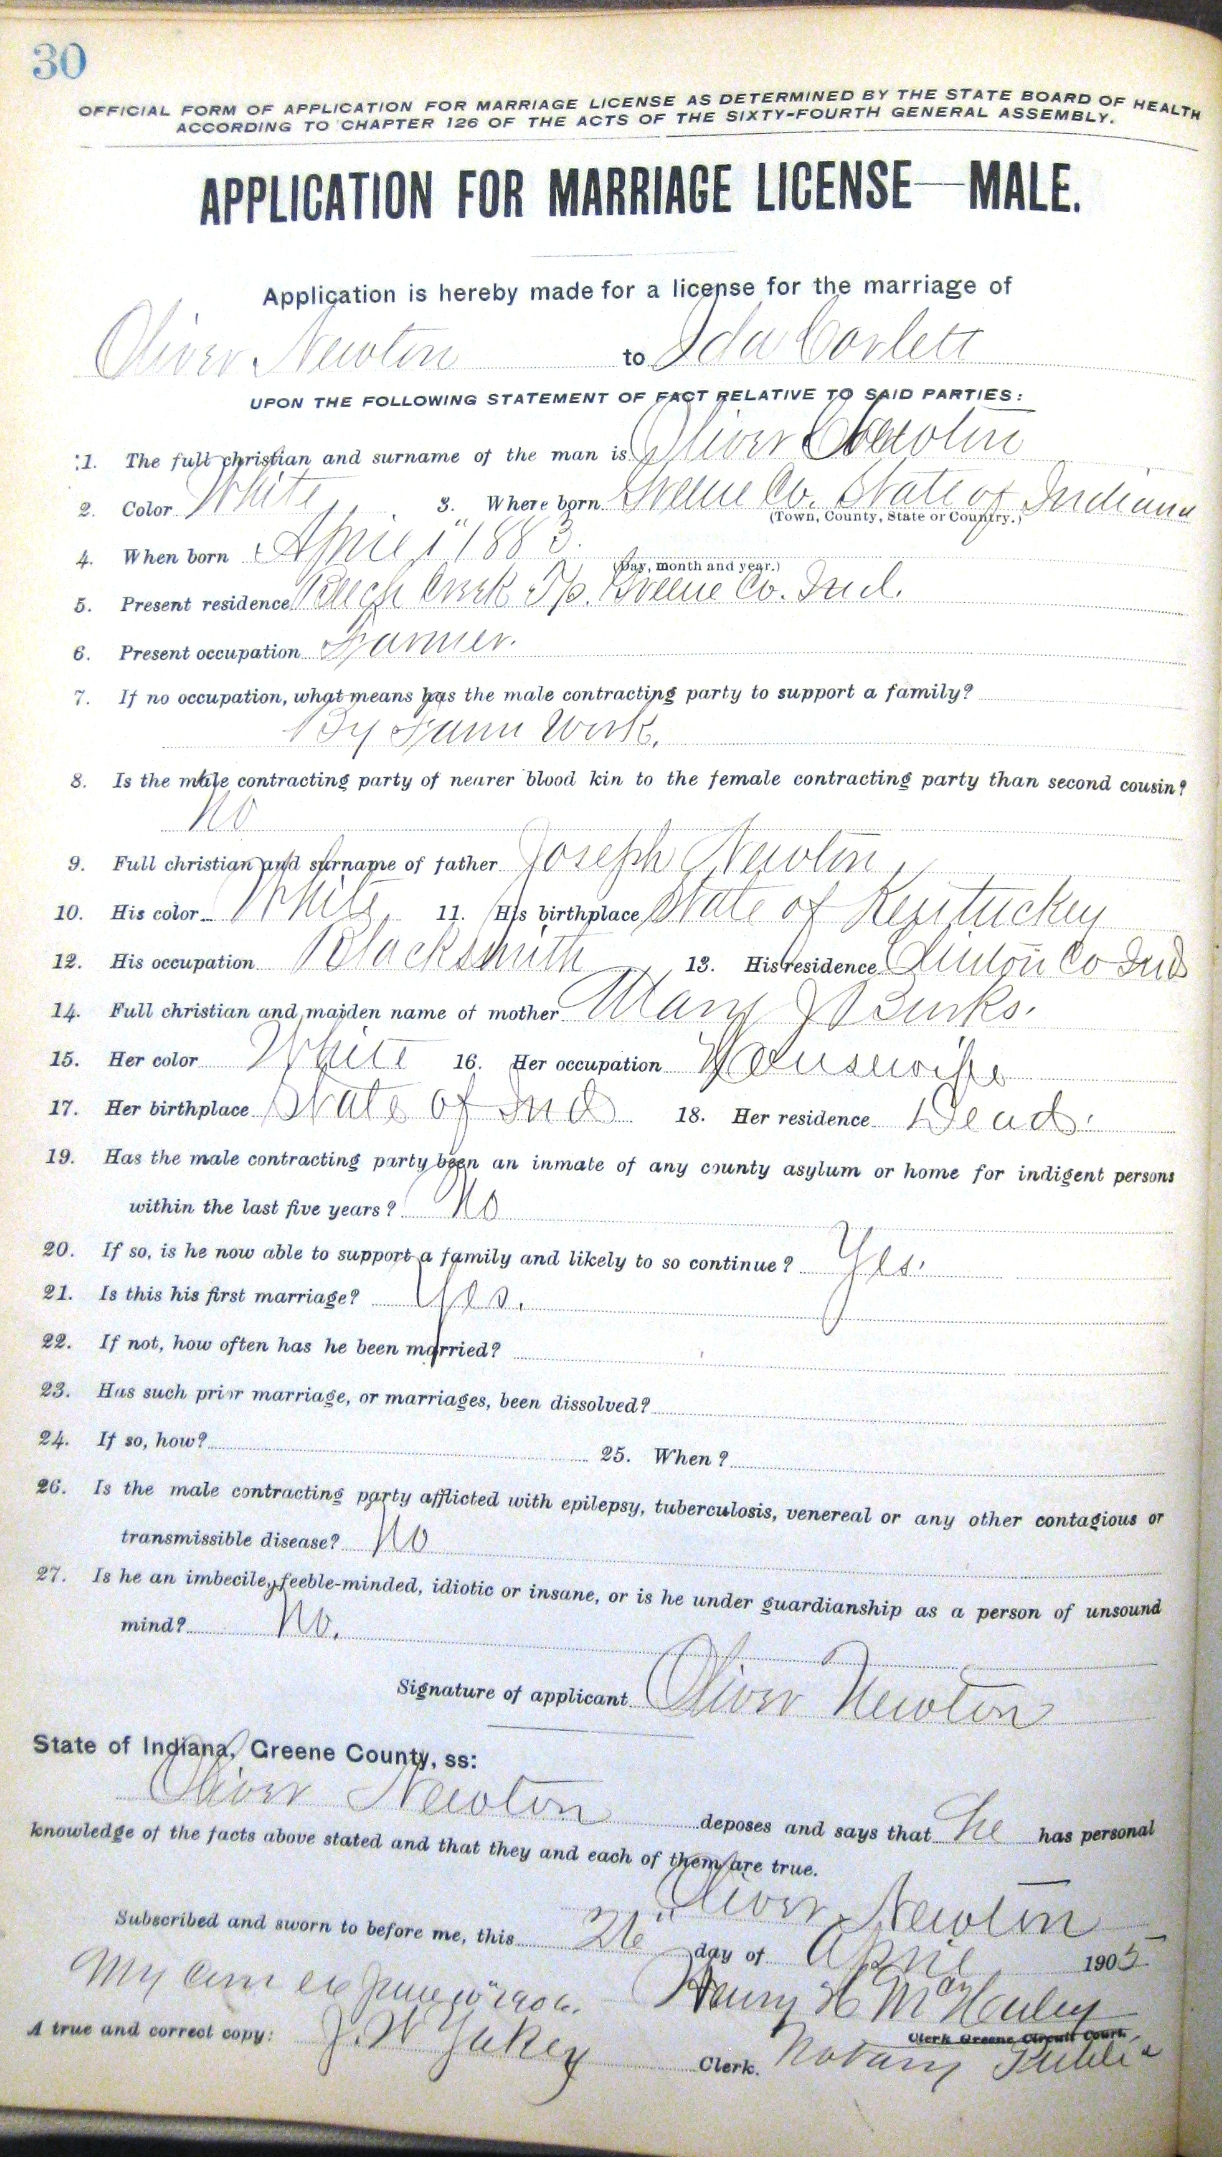 30
OFFICIAL FORM OF APPLICATION FOR MARRIAGE LICENSE AS DETERMINED BY THE STATE BOARD OF HEALTH
ACCORDING TO CHAPTER 126 OF THE ACTS OF THE SIXTY-FOURTH GENERAL ASSEMBLY.
APPLICATION FOR MARRIAGE LICENSE—MALE.
Application is hereby made for a license for the marriage of
Oliver Newton to Ida Corlett
UPON THE FOLLOWING STATEMENT OF FACT RELATIVE TO SAID PARTIES:
1. The full christian and surname of the man is Oliver Newton
2. Color White 3. Where born Greene Co. State of Indiana
(Town, County, State or Country.)
4. When born April 1" 1883.
(Day, month and year.)
5. Present residence Beech Creek Tp. Greene Co. Ind.
6. Present occupation Farmer.
7. If no occupation, what means has the male contracting party to support a family?
By Farm Work.
8. Is the male contracting party of nearer blood kin to the female contracting party than second cousin?
No
9. Full christian and surname of father Joseph Newton
10. His color White 11. His birthplace State of Kentuckey
12. His occupation Blacksmith 13. His residence Clinton Co Ind
14. Full christian and maiden name of mother Mary J Burks.
15. Her color White 16. Her occupation Housewife
17. Her birthplace State of Ind 18. Her residence Dead.
19. Has the male contracting party been an inmate of any county asylum or home for indigent persons
within the last five years? No
20. If so, is he now able to support a family and likely to so continue? Yes.
21. Is this his first marriage? Yes.
22. If not, how often has he been married?
23. Has such prior marriage, or marriages, been dissolved?
24. If so, how? 25. When?
26. Is the male contracting party afflicted with epilepsy, tuberculosis, venereal or any other contagious or
transmissible disease? No
27. Is he an imbecile, feeble-minded, idiotic or insane, or is he under guardianship as a person of unsound
mind? No.
Signature of applicant Oliver Newton
State of Indiana, Greene County, ss:
Oliver Newton deposes and says that he has personal
knowledge of the facts above stated and that they and each of them are true.
Oliver Newton
Subscribed and sworn to before me, this 26" day of April 1905
My Com ex June 10" 1906. Henry H McHaley
Clerk Greene Circuit Court.
A true and correct copy: J. W Yakey Clerk. Notary Public